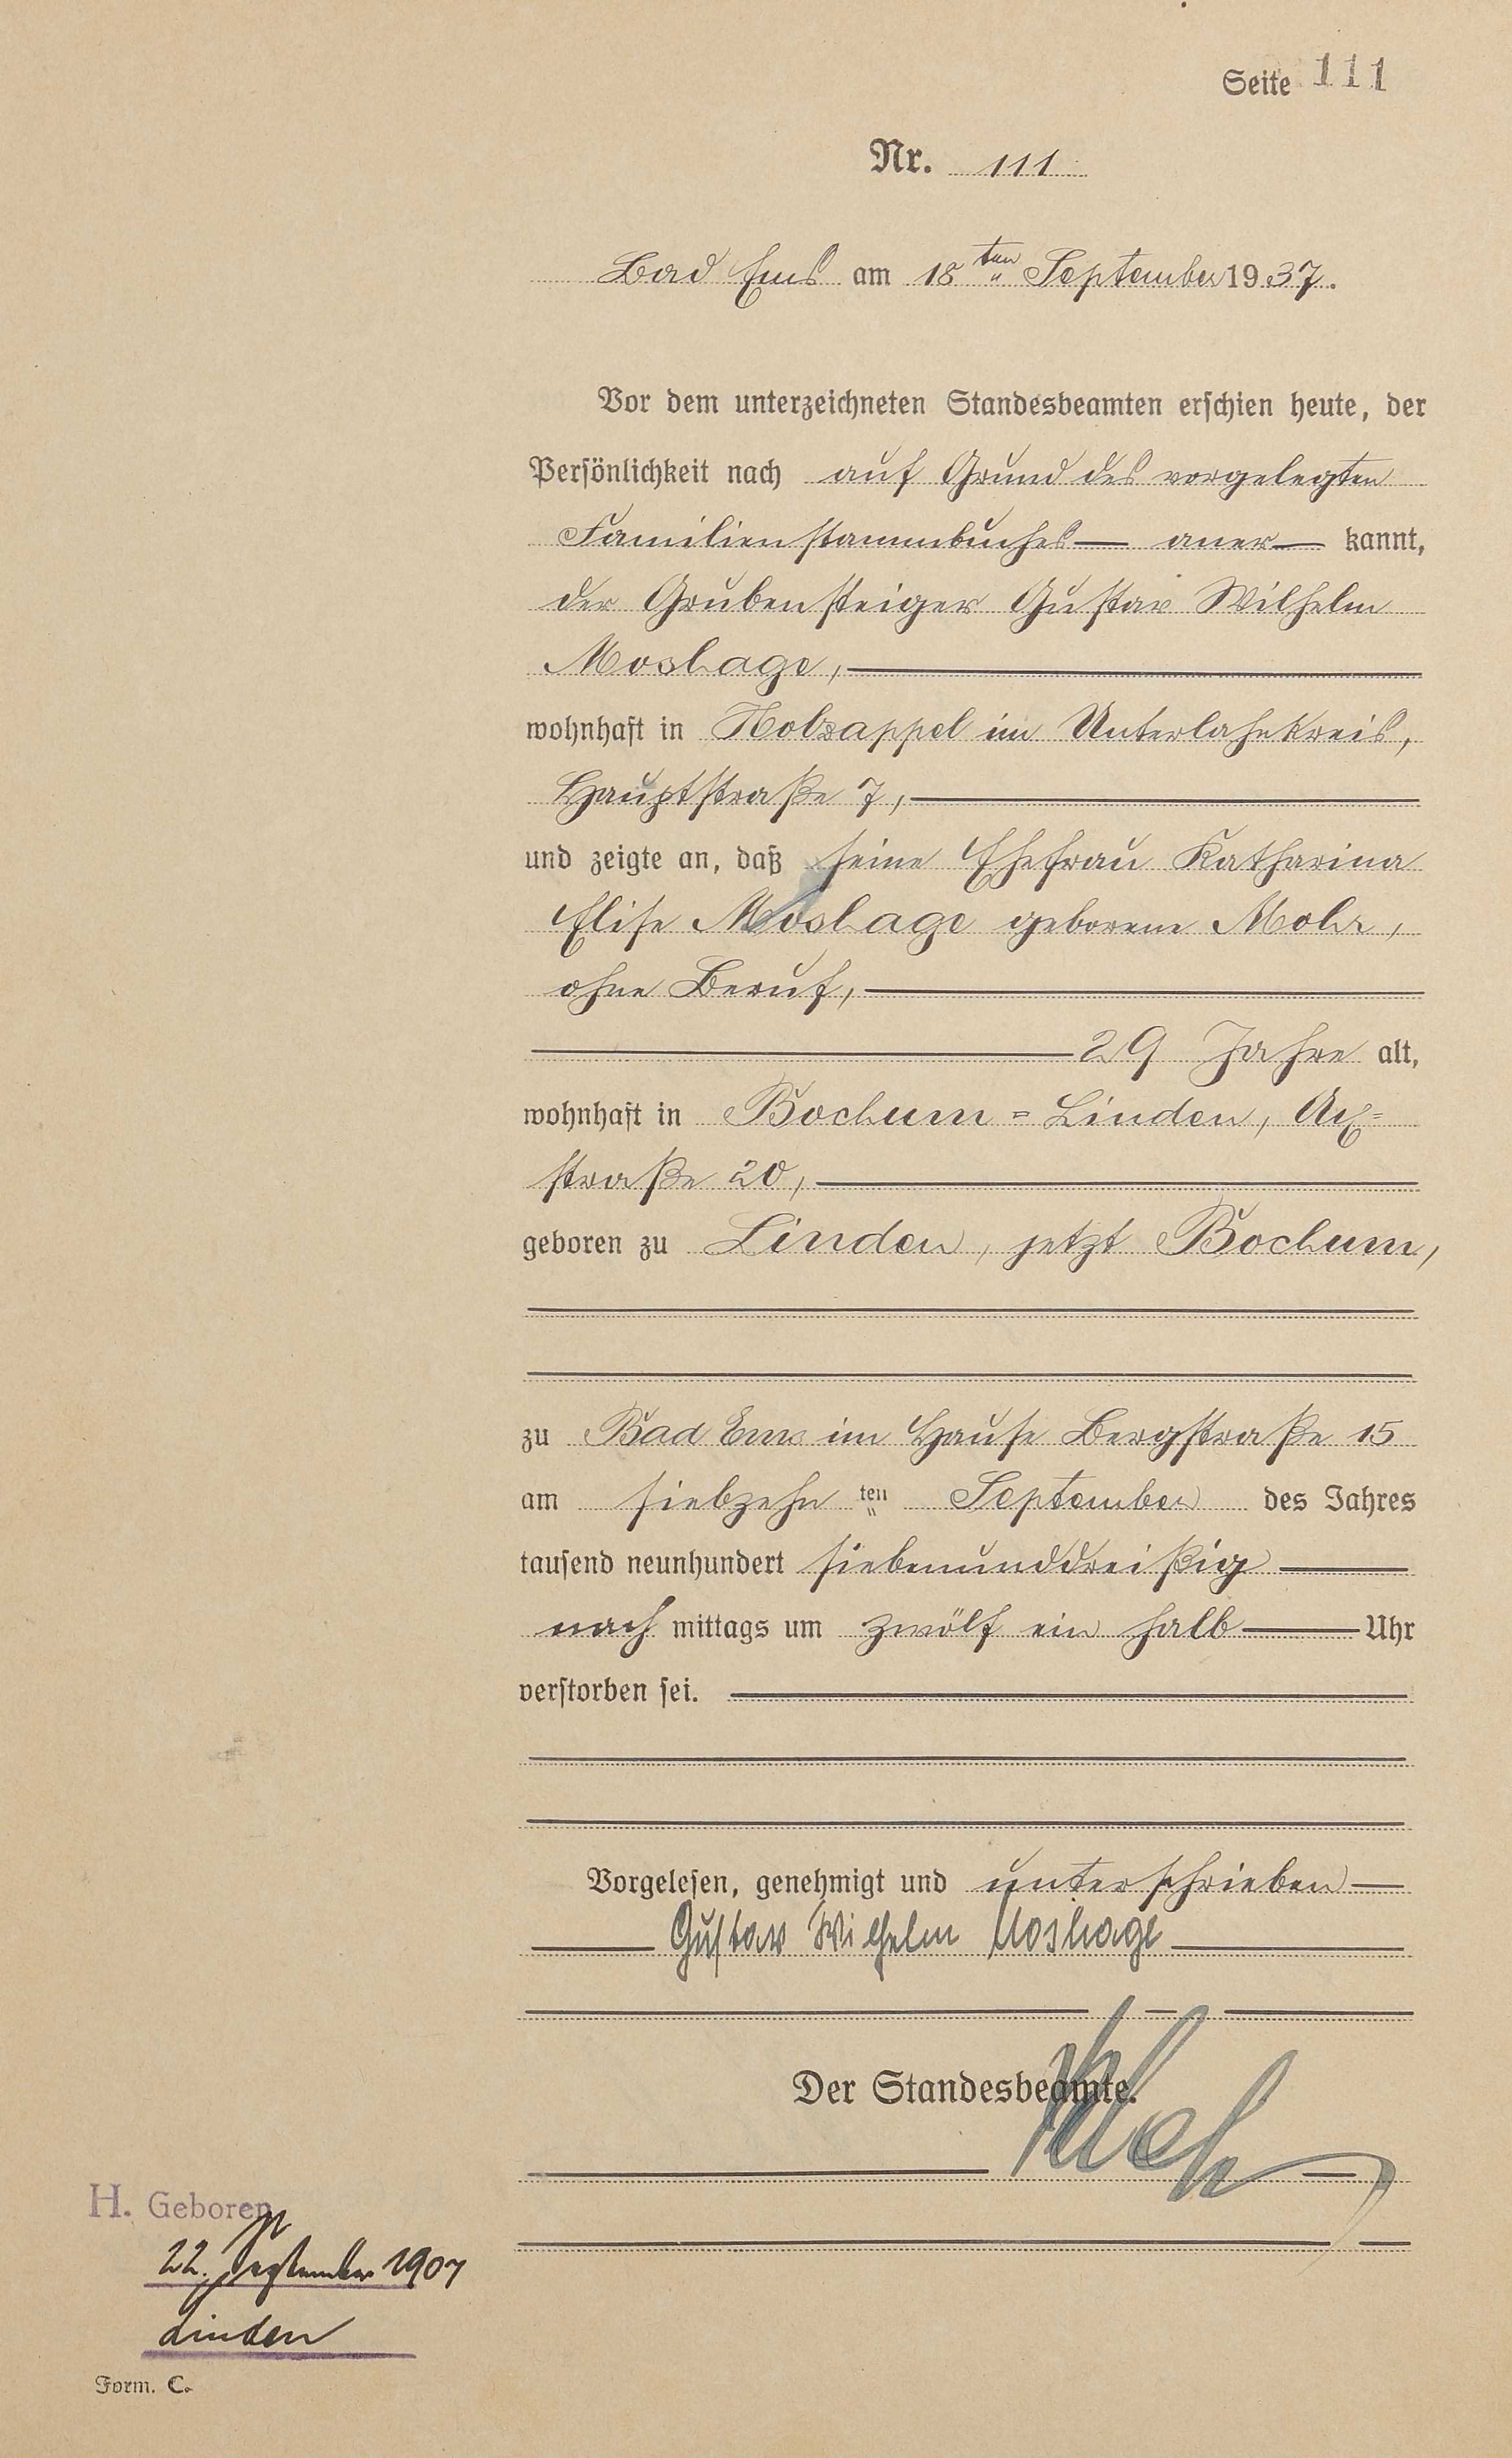 Seite 111
Nr. 111
Bad Ems am 18ten September 1937.
Vor dem unterzeichneten Standesbeamten erschien heute, der
Persönlichkeit nach auf Grund des vorgelegten
Familienstammbuches — aner — kannt,
der Grubensteiger Gustav Wilhelm
Moshage,
wohnhaft in Holzappel im Unterlahnkreis,
Hauptstraße 7,
und zeigte an, daß seine Ehefrau Katharina
Elise Moshage geborene Mohr,
ohne Beruf,
29 Jahre alt,
wohnhaft in Bochum-Linden, Axt-
straße 20,
geboren zu Linden, jetzt Bochum,
zu Bad Ems im Hause Bergstraße 15
am siebzehn ten September des Jahres
tausend neunhundert siebenunddreißig
nach mittags um zwölf ein halb Uhr
verstorben sei.
Vorgelesen, genehmigt und unterschrieben
Gustav Wilhelm Moshage
Der Standesbeamte.
H. Geboren
22. September 1907
Linden
Form. C.